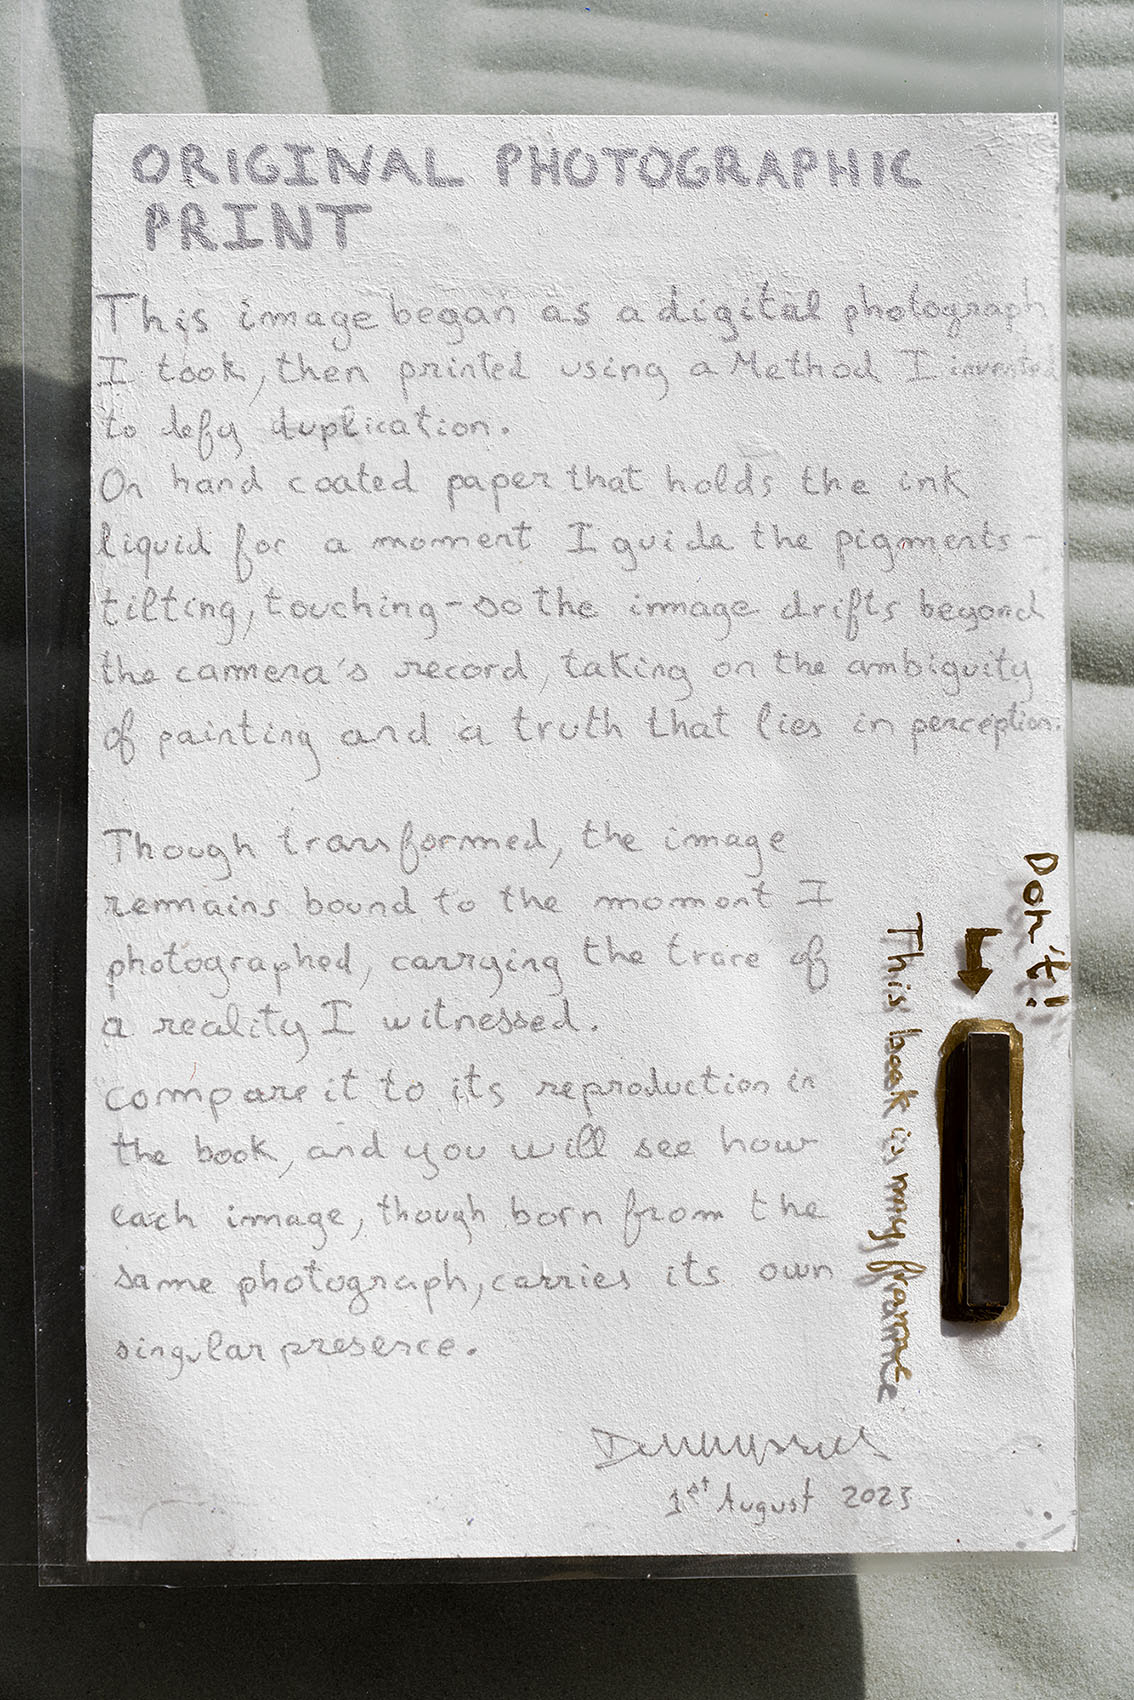 ORIGINAL PHOTOGRAPHIC
PRINT
This image began as a digital photograph
I took, then printed using a Method I invented
to defy duplication.
On hand coated paper that holds the ink
liquid for a moment I guide the pigments-
tilting, touching-so the image drifts beyond
the camera's record, taking on the ambiguity
of painting and a truth that lies in perception.
Though transformed, the image
remains bound to the moment I
photographed, carrying the trace of
a reality I witnessed.
compare it to its reproduction in
the book, and you will see how
each image, though born from the
same photograph, carries its own
singular presence.
1st August 2025
Don't!
This book is my frame